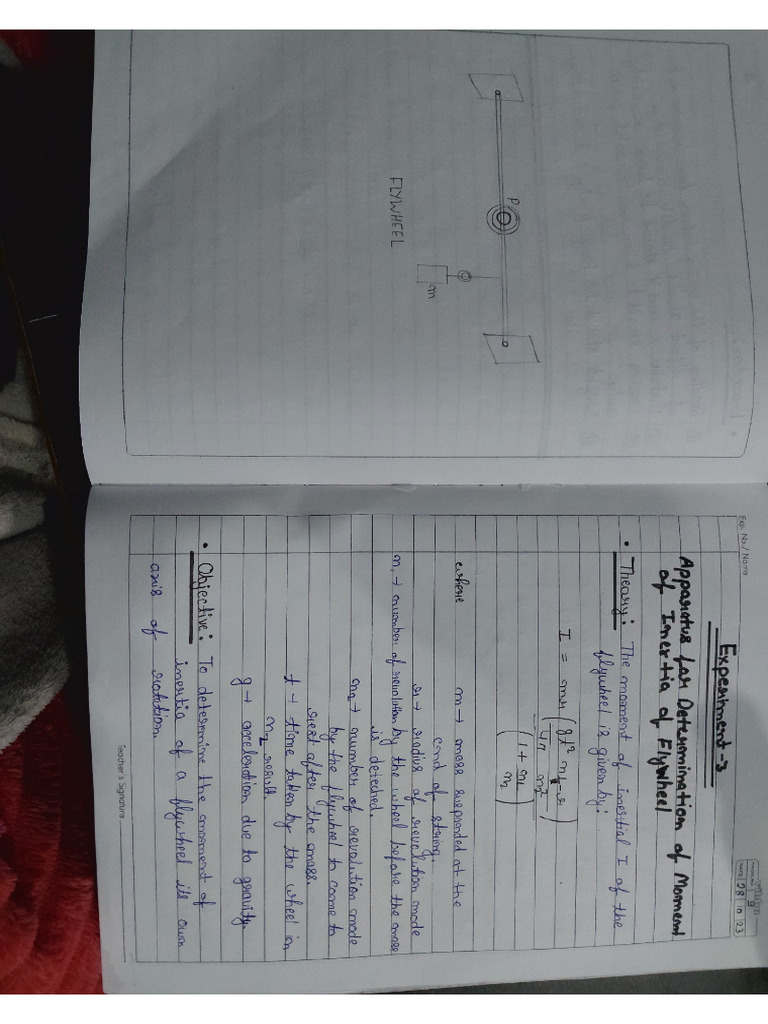 P
m
FLYWHEEL
Exp. No./ Name
9
DATE 28 10 23
Experiment-3
Apparatus for Determination of Moment
of Inertia of Flywheel
• Theory: The moment of inertial I of the
flywheel is given by:
I = mr ( gt² n1 - r )
4π n2²
( 1 + n1 )
n2
where m → mass suspended at the
end of string.
r → radius of revolution made
n1 → number of revolution by the wheel before the mass
is detached.
n2 → number of revolution made
by the flywheel to come to
rest after the mass.
t → time taken by the wheel in
n2 result.
g → acceleration due to gravity
• Objective: To determine the moment of
inertia of a flywheel its own
axis of rotation.
Teacher's Signature